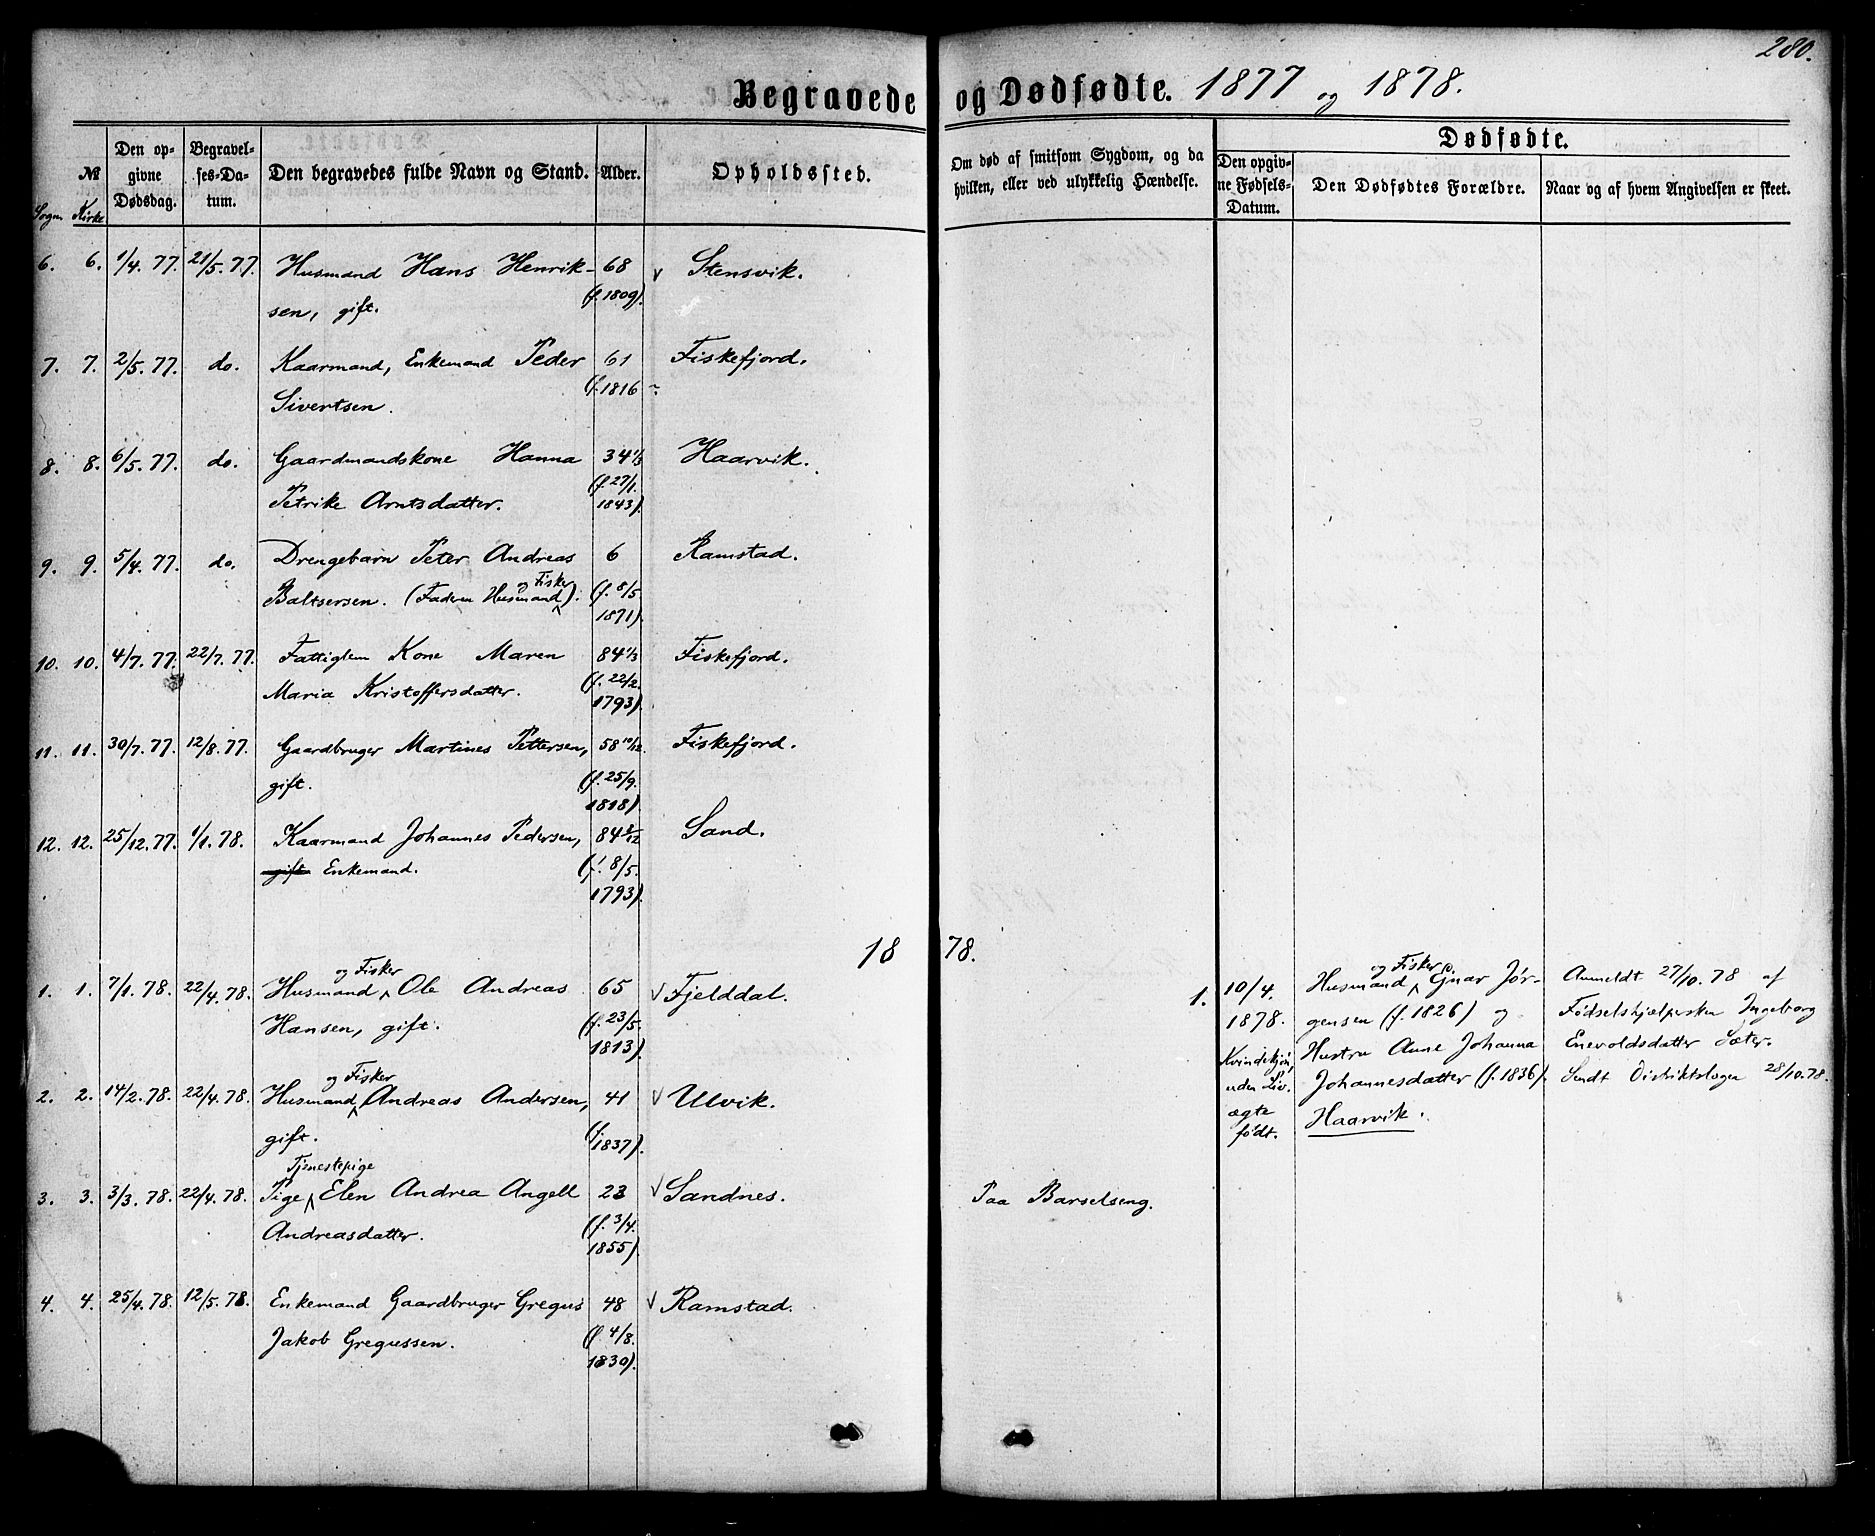 280.
Begravede og Dødfødte. 1877 og 1878.
Sogn. № Kirke
Den opgivne Dødsdag.
Begravelses-Datum.
Den begravedes fulde Navn og Stand.
Alder.
Opholdssted.
Om død af smitsom Sygdom, og da
hvilken, eller ved ulykkelig Hændelse.
Dødfødte.
Den opgivne Fødsels-Datum.
Den Dødfødtes Forældre.
Naar og af hvem Angivelsen er skeet.
6. 6. 1/4. 77. 21/5. 77. Husmand Hans Henrik- 68 v Stensvik.
sen, gift. (f. 1809).
7. 7. 2/5. 77. do. Kaarmand, Enkemand Peder 61 Fiskefjord.
Sivertsen. (f. 1816
8. 8. 6/5. 77. do. Gaardmandskone Hanna 34 1/3 Haarvik.
Petrike Arntsdatter. (f. 27/1.
1843).
9. 9. 5/4. 77. do. Drengebarn Peter Andreas 6 Ramstad.
og Fisker
Baltsersen. (Faderen Husmand^). (f. 8/5
1871).
10. 10. 4/7. 77. 22/7. 77. Fattiglem Kone Maren 84 1/3 Fiskefjord.
Maria Kristoffersdatter. (f. 22/2.
1793).
11. 11. 30/7. 77. 12/8. 77. Gaardbruger Martines Pettersen, 58 10/12. Fiskefjord.
gift. (f. 25/9.
1818).
12. 12. 25/12. 77. 1/1. 78. Kaarmand Johannes Pedersen, 84 Sand.
gift Enkemand. (f. 8/5.
1793).
1878.
og Fisker
1. 1. 7/1. 78. 22/4. 78. Husmand ^ Ole Andreas 65 v Fjelddal.
Hansen, gift. (f. 23/5.
1813).
og Fisker
2. 2. 14/2. 78. 22/4. 78. Husmand ^ Andreas Andersen, 41 v Ulvik.
gift. (f. 1837).
Tjenestepige
3. 3. 3/3. 78. 22/4. 78. Pige ^ Elen Andrea Angell 23 v Sandnes. Paa Barselseng.
Andreasdatter. (f. 3/4.
1855).
4. 4. 25/4. 78. 12/5. 78. Enkemand Gaardbruger Gregus 48 v Ramstad.
Jakob Gregussen. (f 4/8.
1830).
1. 10/4.
1878.
Kvindekjøn,
uden Liv.
ægte
født.
og Fisker
Husmand ^ Ejnar Jør-
gensen (f. 1826) og
Hustru Anne Johanna
Johannesdatter (f. 1836).
Haarvik.
Anmeldt 27/10. 78 af
Fødselshjælpersken Ingeborg
Enevoldsdatter Sæter.
Sendt Distriktslægen 28/10. 78.